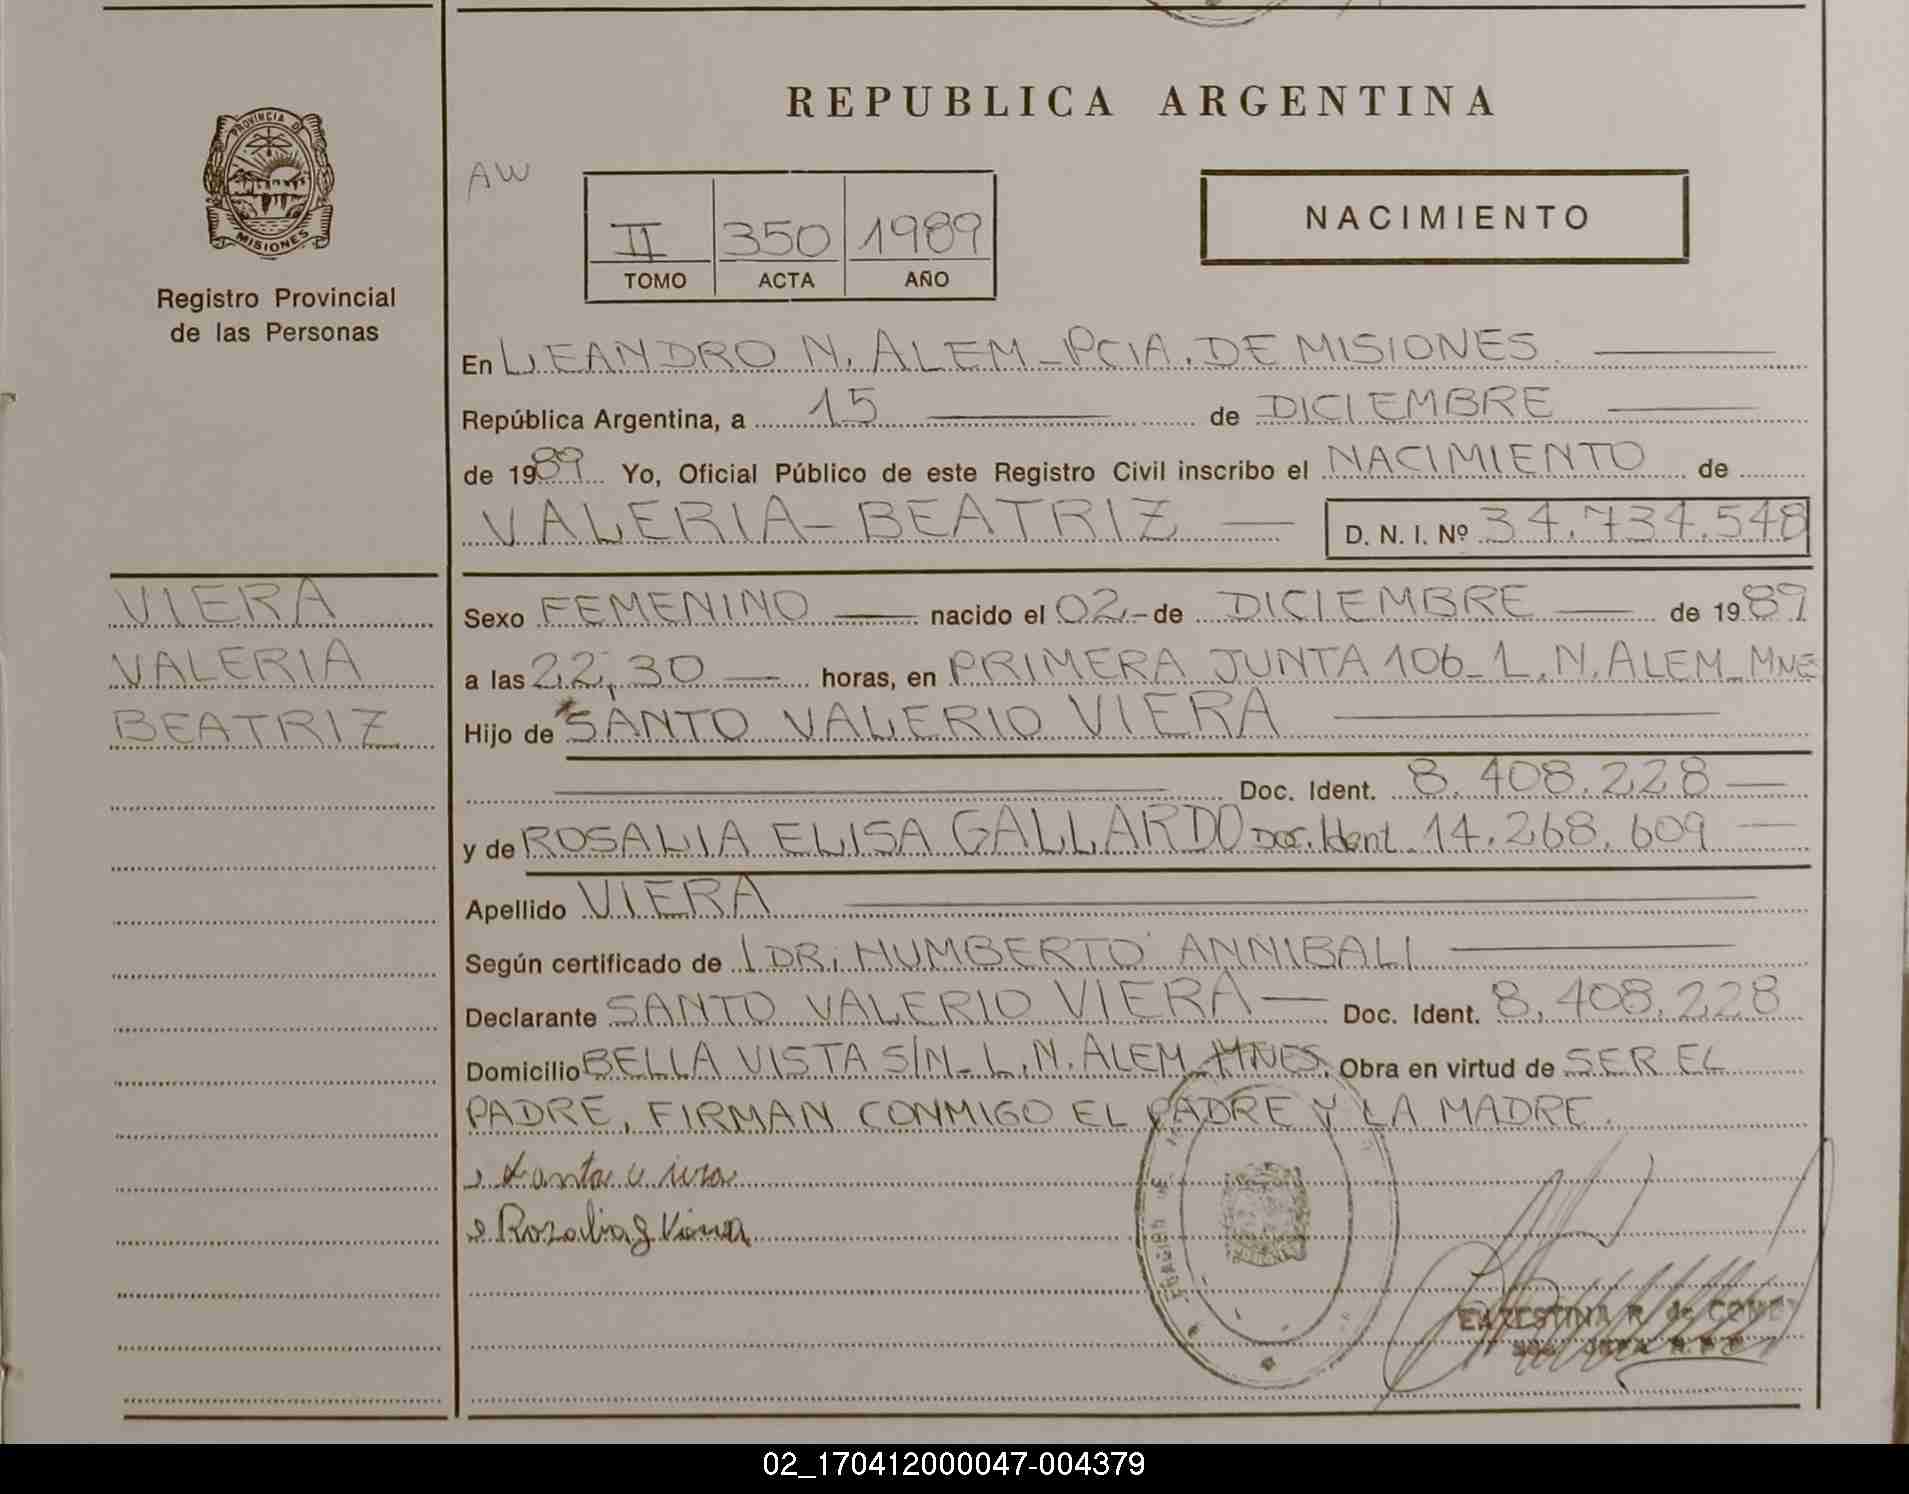 REPUBLICA ARGENTINA
PROVINCIA D
MISIONES
Registro Provincial
de las Personas
AW
II 350 1989
TOMO ACTA AÑO
NACIMIENTO
En LEANDRO N. ALEM - PCIA. DE MISIONES
República Argentina, a 15 de DICIEMBRE
de 1989 Yo, Oficial Público de este Registro Civil inscribo el NACIMIENTO de
VALERIA - BEATRIZ D. N. I. Nº 34.734.548
VIERA
VALERIA
BEATRIZ
Sexo FEMENINO nacido el 02 - de DICIEMBRE de 1989
a las 22,30 horas, en PRIMERA JUNTA 106 - L. N. ALEM - MNE
Hijo de SANTO VALERIO VIERA
Doc. Ident. 8.408.228
y de ROSALIA ELISA GALLARDO Doc. Ident. 14.268.609
Apellido VIERA
Según certificado de DR. HUMBERTO ANNIBALI
Declarante SANTO VALERIO VIERA Doc. Ident. 8.408.228
Domicilio BELLA VISTA S/N - L. N. ALEM - MNES. Obra en virtud de SER EL
PADRE, FIRMAN CONMIGO EL PADRE Y LA MADRE.
Rosalia g Viera
R. de
02_170412000047-004379